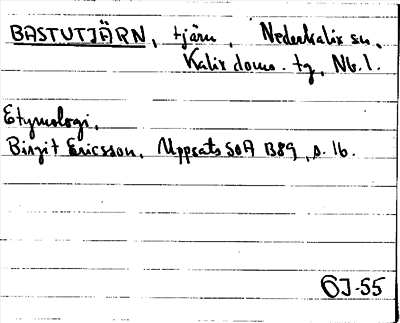 BASTUTJÄRN, tjärn, Nederkalix sn,
Kalix doms. tg, Nb.l.
Etymologi.
Birgit Ericsson, Uppsats SOA B89, s. 16.
GJ-55